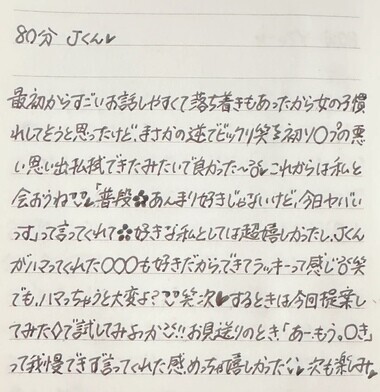 80分 Jくん♥
最初からすごいお話しやすくて落ち着きもあったから女の子慣
れしてそうと思ったけど、まさかの逆でビックリ笑 初ソ〇プの悪
い思い出払拭できたみたいで良かった〜 これからは私と
会おうね♥「普段✿あんまり好きじゃないけど、今日ヤバい
っす」って言ってくれて✿好きな私としては超嬉しかったし、Jくん
がハマってくれた〇〇〇も好きだから、できてラッキーって感じ 笑
でも、ハマっちゃうと大変よ？笑 次♥するときは今回提案し
てみた◇で試してみよっか!! お見送りのとき「あーもう。〇き」
って我慢できず言ってくれた感、めっちゃ嬉しかった♥次も楽しみ♥